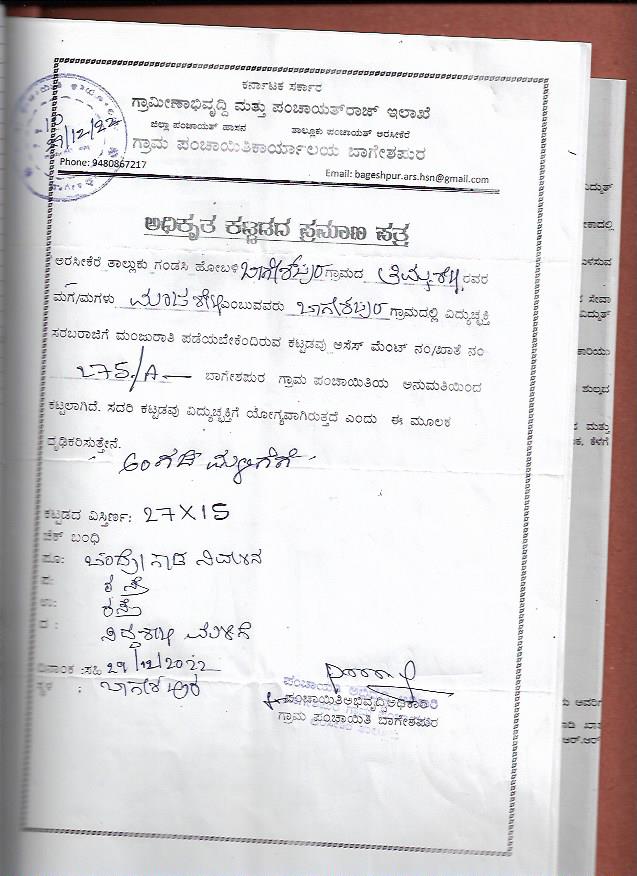 ಕರ್ನಾಟಕ ಸರ್ಕಾರ
ಗ್ರಾಮೀಣಾಭಿವೃದ್ದಿ ಮತ್ತು ಪಂಚಾಯತ್‌ರಾಜ್ ಇಲಾಖೆ
ಜಿಲ್ಲಾ ಪಂಚಾಯತ್ ಹಾಸನ ತಾಲ್ಲೂಕು ಪಂಚಾಯತ್ ಅರಸೀಕೆರೆ
ಗ್ರಾಮ ಪಂಚಾಯಿತಿಕಾರ್ಯಾಲಯ ಬಾಗೇಶಪುರ
29/12/22
Phone: 9480867217
Email: bageshpur.ars.hsn@gmail.com
ಅಧಿಕೃತ ಕಟ್ಟಡದ ಪ್ರಮಾಣ ಪತ್ರ
ಅರಸೀಕೆರೆ ತಾಲ್ಲುಕು ಗಂಡಸಿ ಹೋಬಳಿ ಬಾಗೇಶಪುರ ಗ್ರಾಮದ ರವರ
ಮಗ/ಮಗಳು ಎಂಬುವವರು ಬಾಗೇಶಪುರ ಗ್ರಾಮದಲ್ಲಿ ವಿದ್ಯುಚ್ಛಕ್ತಿ
ಸರಬರಾಜಿಗೆ ಮಂಜುರಾತಿ ಪಡೆಯಬೇಕೆಂದಿರುವ ಕಟ್ಟಡವು ಅಸೆಸ್ ಮೆಂಟ್ ನಂ/ಖಾತೆ ನಂ
275/A ಬಾಗೇಶಪುರ ಗ್ರಾಮ ಪಂಚಾಯಿತಿಯ ಅನುಮತಿಯಿಂದ
ಕಟ್ಟಲಾಗಿದೆ. ಸದರಿ ಕಟ್ಟಡವು ವಿದ್ಯುಚ್ಛಕ್ತಿಗೆ ಯೋಗ್ಯವಾಗಿರುತ್ತದೆ ಎಂದು ಈ ಮೂಲಕ
ದೃಢಿಕರಿಸುತ್ತೇನೆ.
ಅಂಗಡಿ ಮಳಿಗೆಗೆ
ಕಟ್ಟಡದ ವಿಸ್ತೀರ್ಣ: 27X15
ಚೆಕ್ ಬಂಧಿ
ಪೂ: ನಿವೇಶನ
ಪ: ರಸ್ತೆ
ಉ: ರಸ್ತೆ
ದ : ಮಳಿಗೆ
ದಿನಾಂಕ :ಸಹಿ 29/12/2022
ಸ್ಥಳ : ಬಾಗೇಶಪುರ
ಪಂಚಾಯಿತಿಅಭಿವೃದ್ಧಿಅಧಿಕಾರಿ
ಗ್ರಾಮ ಪಂಚಾಯಿತಿ ಬಾಗೇಶಪುರ